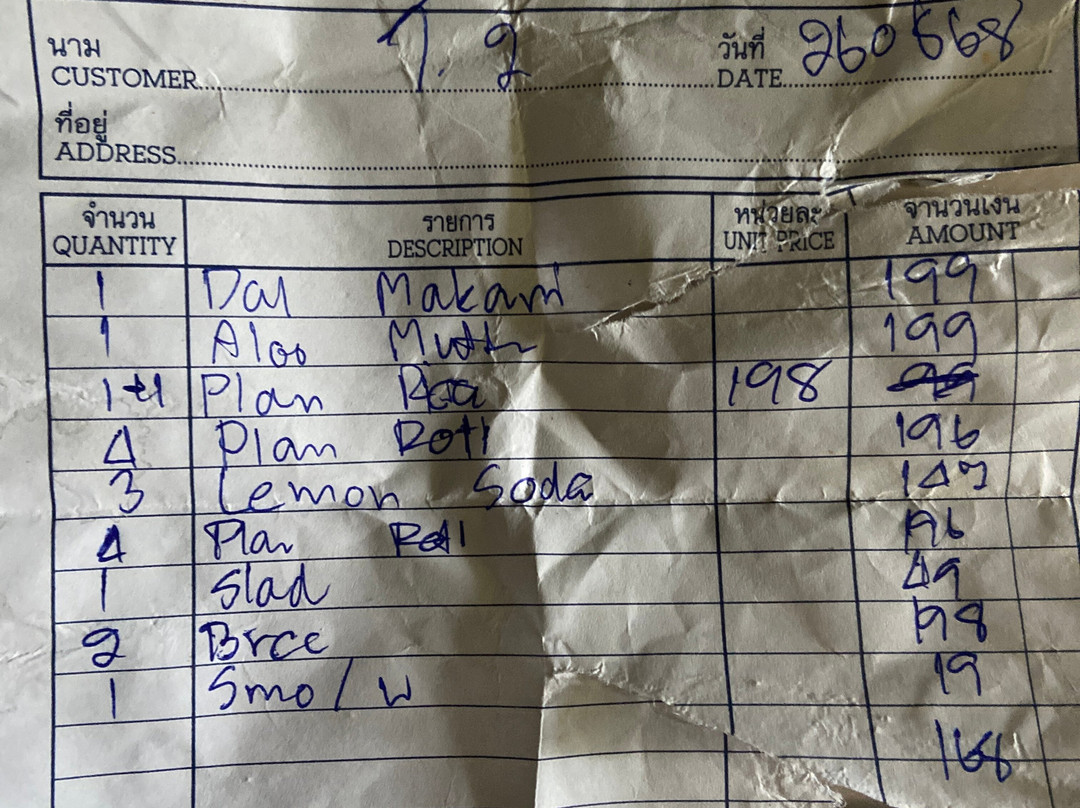 นาม 1. 2 วันที่ 260568
CUSTOMER DATE
ที่อยู่
ADDRESS
จำนวน รายการ หน่วยละ จำนวนเงิน
QUANTITY DESCRIPTION UNIT PRICE AMOUNT
1 Dal Makani 199
1 Aloo 199
1+1 Plan 198
4 Plan Roti 196
3 Lemon Soda 147
4 Plan Roti 196
1 Slad 49
2 Brce 198
1 Smo/w 19